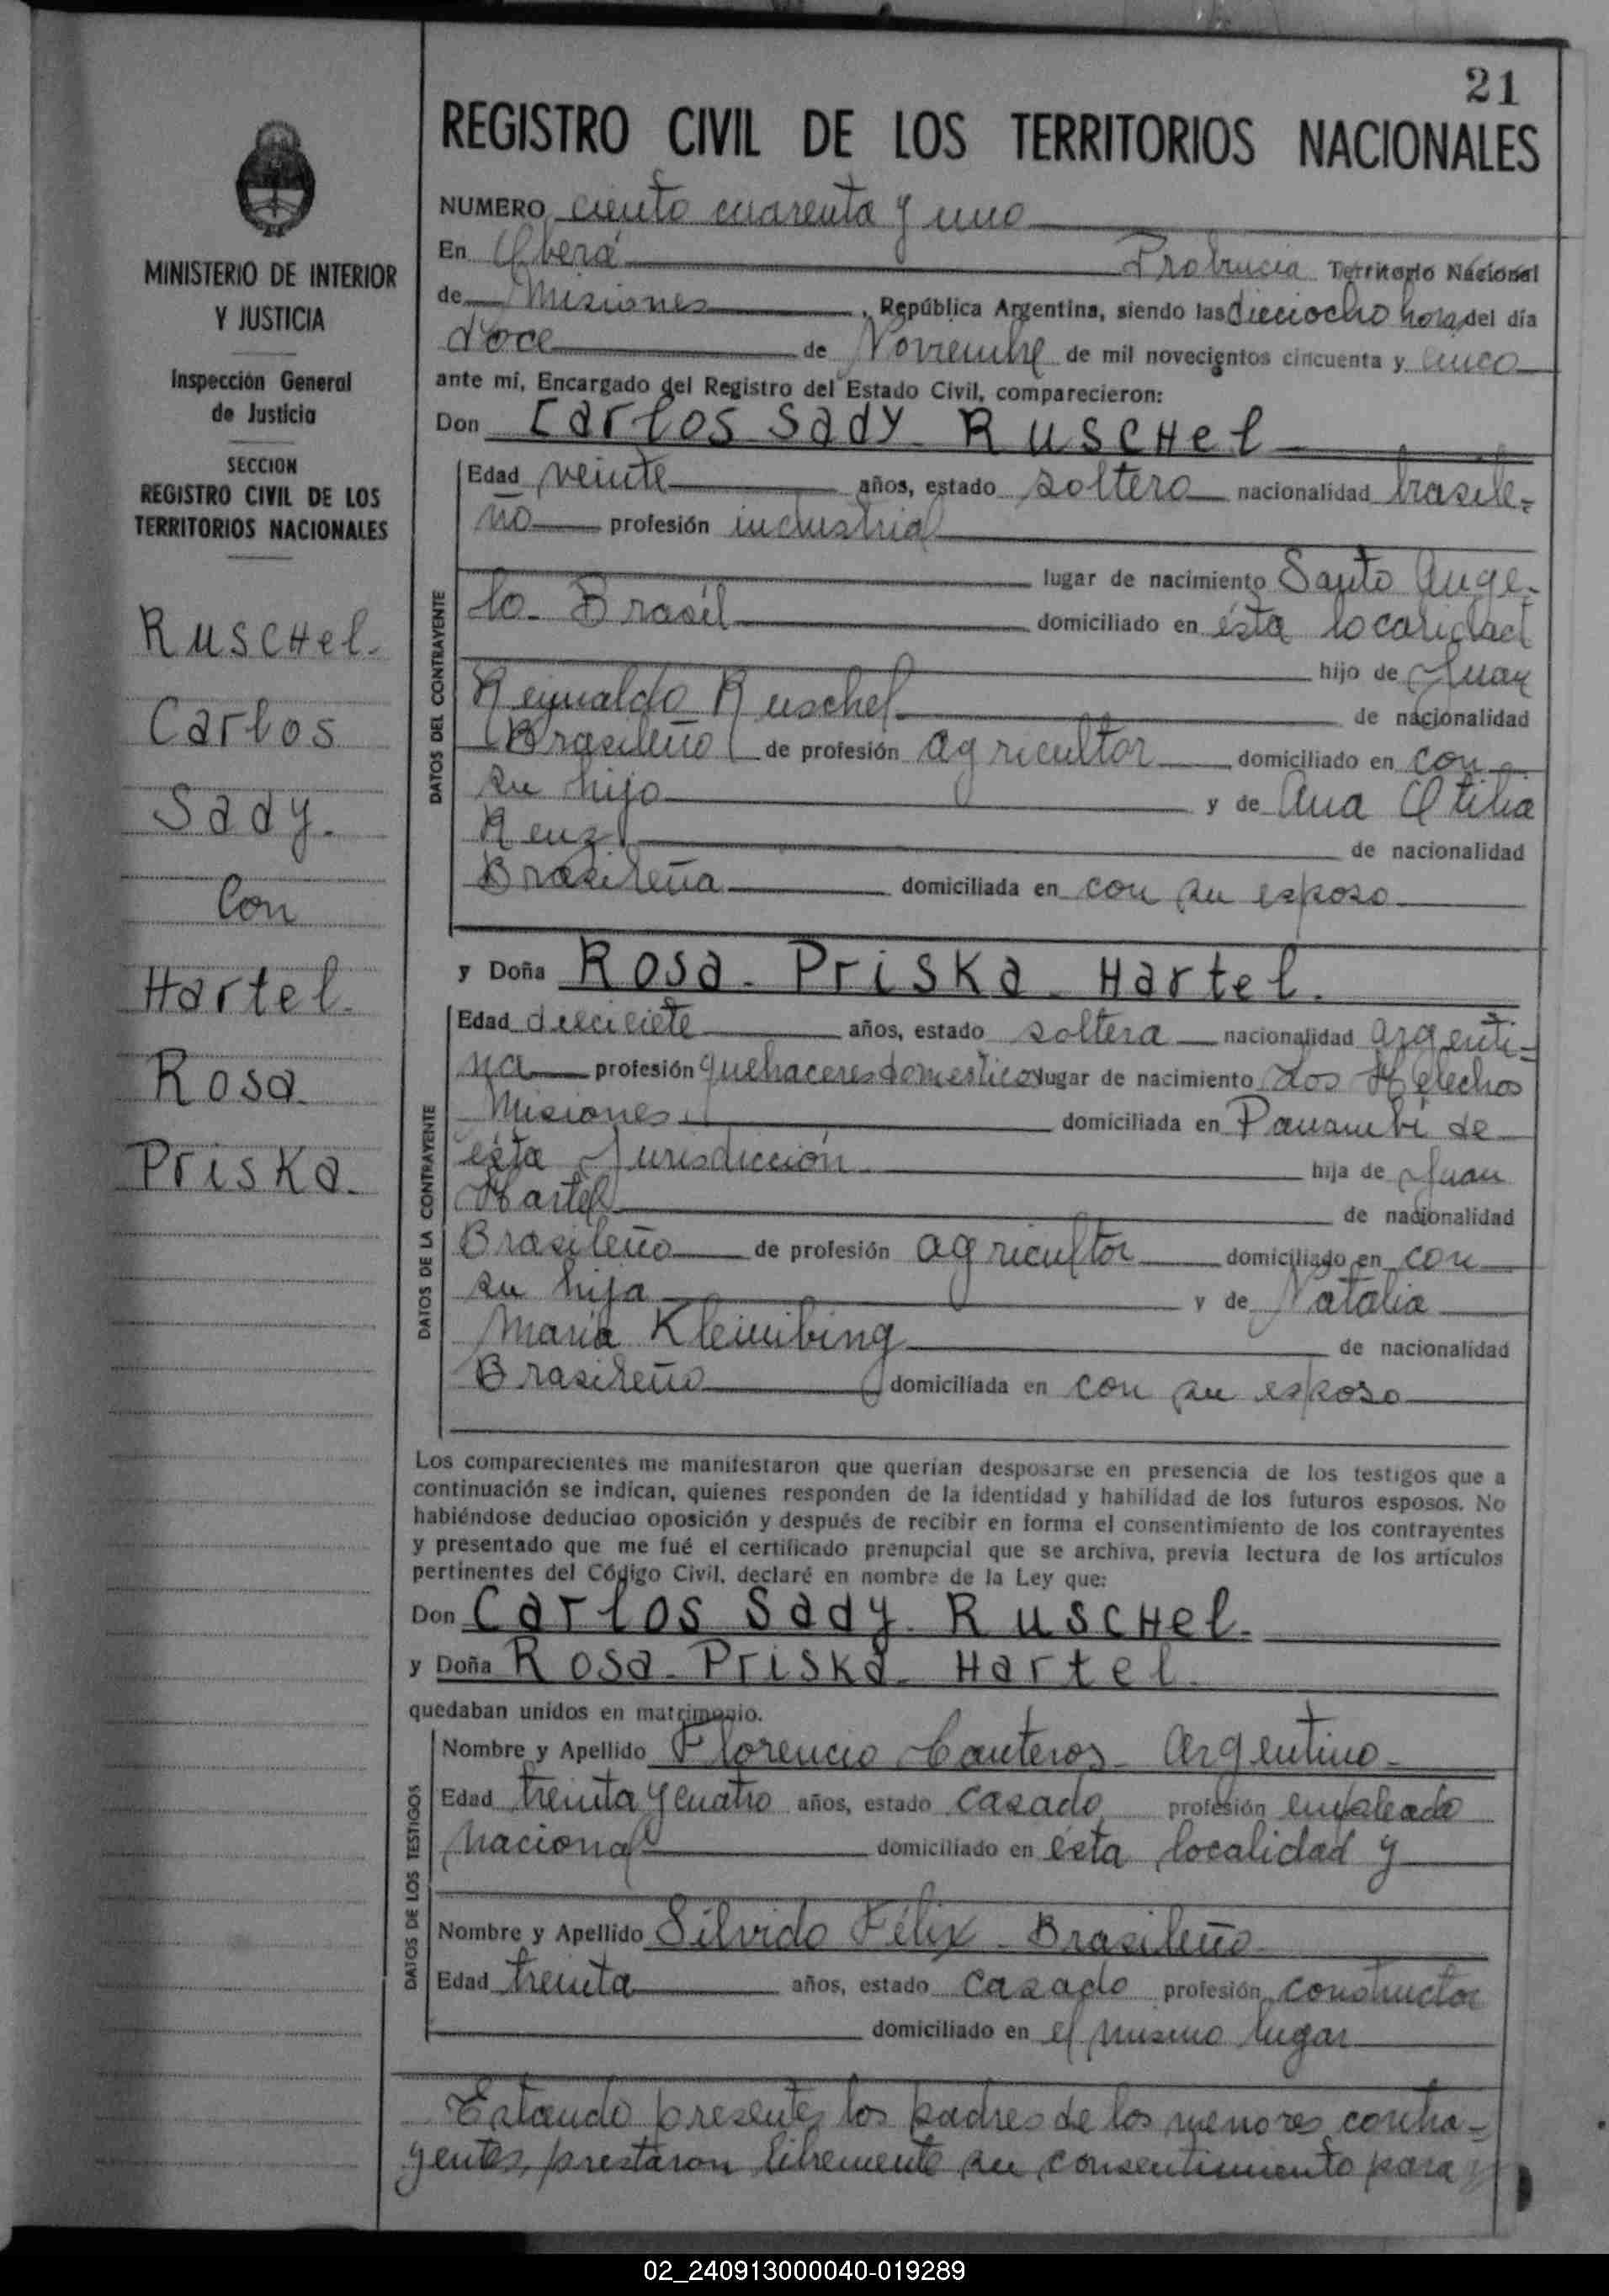 21
REGISTRO CIVIL DE LOS TERRITORIOS NACIONALES
MINISTERIO DE INTERIOR
Y JUSTICIA
Inspección General
de Justicia
SECCION
REGISTRO CIVIL DE LOS
TERRITORIOS NACIONALES
Ruschel.
Carlos
Sady.
Con
Hartel.
Rosa
Priska.
NUMERO ciento cuarenta y uno
En Oberá Probincia Territorio Nacional
de Misiones, República Argentina, siendo las dieciocho horas del día
doce de Noviembre de mil novecientos cincuenta y cinco
ante mí, Encargado del Registro del Estado Civil, comparecieron:
Don Carlos Sady Ruschel
DATOS DEL CONTRAYENTE
Edad veinte años, estado soltero nacionalidad brasile-
ño profesión industrial
lugar de nacimiento Santo Ange-
lo - Brasil domiciliado en ésta localidad
hijo de Juan
Reinaldo Ruschel de nacionalidad
Brasileño de profesión agricultor domiciliado en con
su hijo y de Ana Otilia
Renz de nacionalidad
Brasileña domiciliada en con su esposo
y Doña Rosa - Priska - Hartel.
DATOS DE LA CONTRAYENTE
Edad diecisiete años, estado soltera nacionalidad argenti-
na profesión quehaceres domesticos lugar de nacimiento Los Helechos
Misiones domiciliada en Panambí de
ésta Jurisdicción hija de Juan
Hartel de nacionalidad
Brasileño de profesión agricultor domiciliado en con
su hija y de Natalia
Maria Kleimibing de nacionalidad
Brasileño domiciliada en con su esposo
Los comparecientes me manifestaron que querían desposarse en presencia de los testigos que a
continuación se indican, quienes responden de la identidad y habilidad de los futuros esposos. No
habiéndose deducido oposición y después de recibir en forma el consentimiento de los contrayentes
y presentado que me fué el certificado prenupcial que se archiva, previa lectura de los artículos
pertinentes del Código Civil, declaré en nombre de la Ley que:
Don Carlos Sady Ruschel.
y Doña Rosa - Priska - Hartel.
quedaban unidos en matrimonio.
DATOS DE LOS TESTIGOS
Nombre y Apellido Florencio Canteros - Argentino -
Edad treinta y cuatro años, estado casado profesión empleado
nacional domiciliado en ésta localidad y
Nombre y Apellido Silvido Félix - Brasileño
Edad treinta años, estado casado profesión constructor
domiciliado en el mismo lugar
Estando presentes los padres de los menores contra-
yentes, prestaron libremente su consentimiento para
02_240913000040-019289